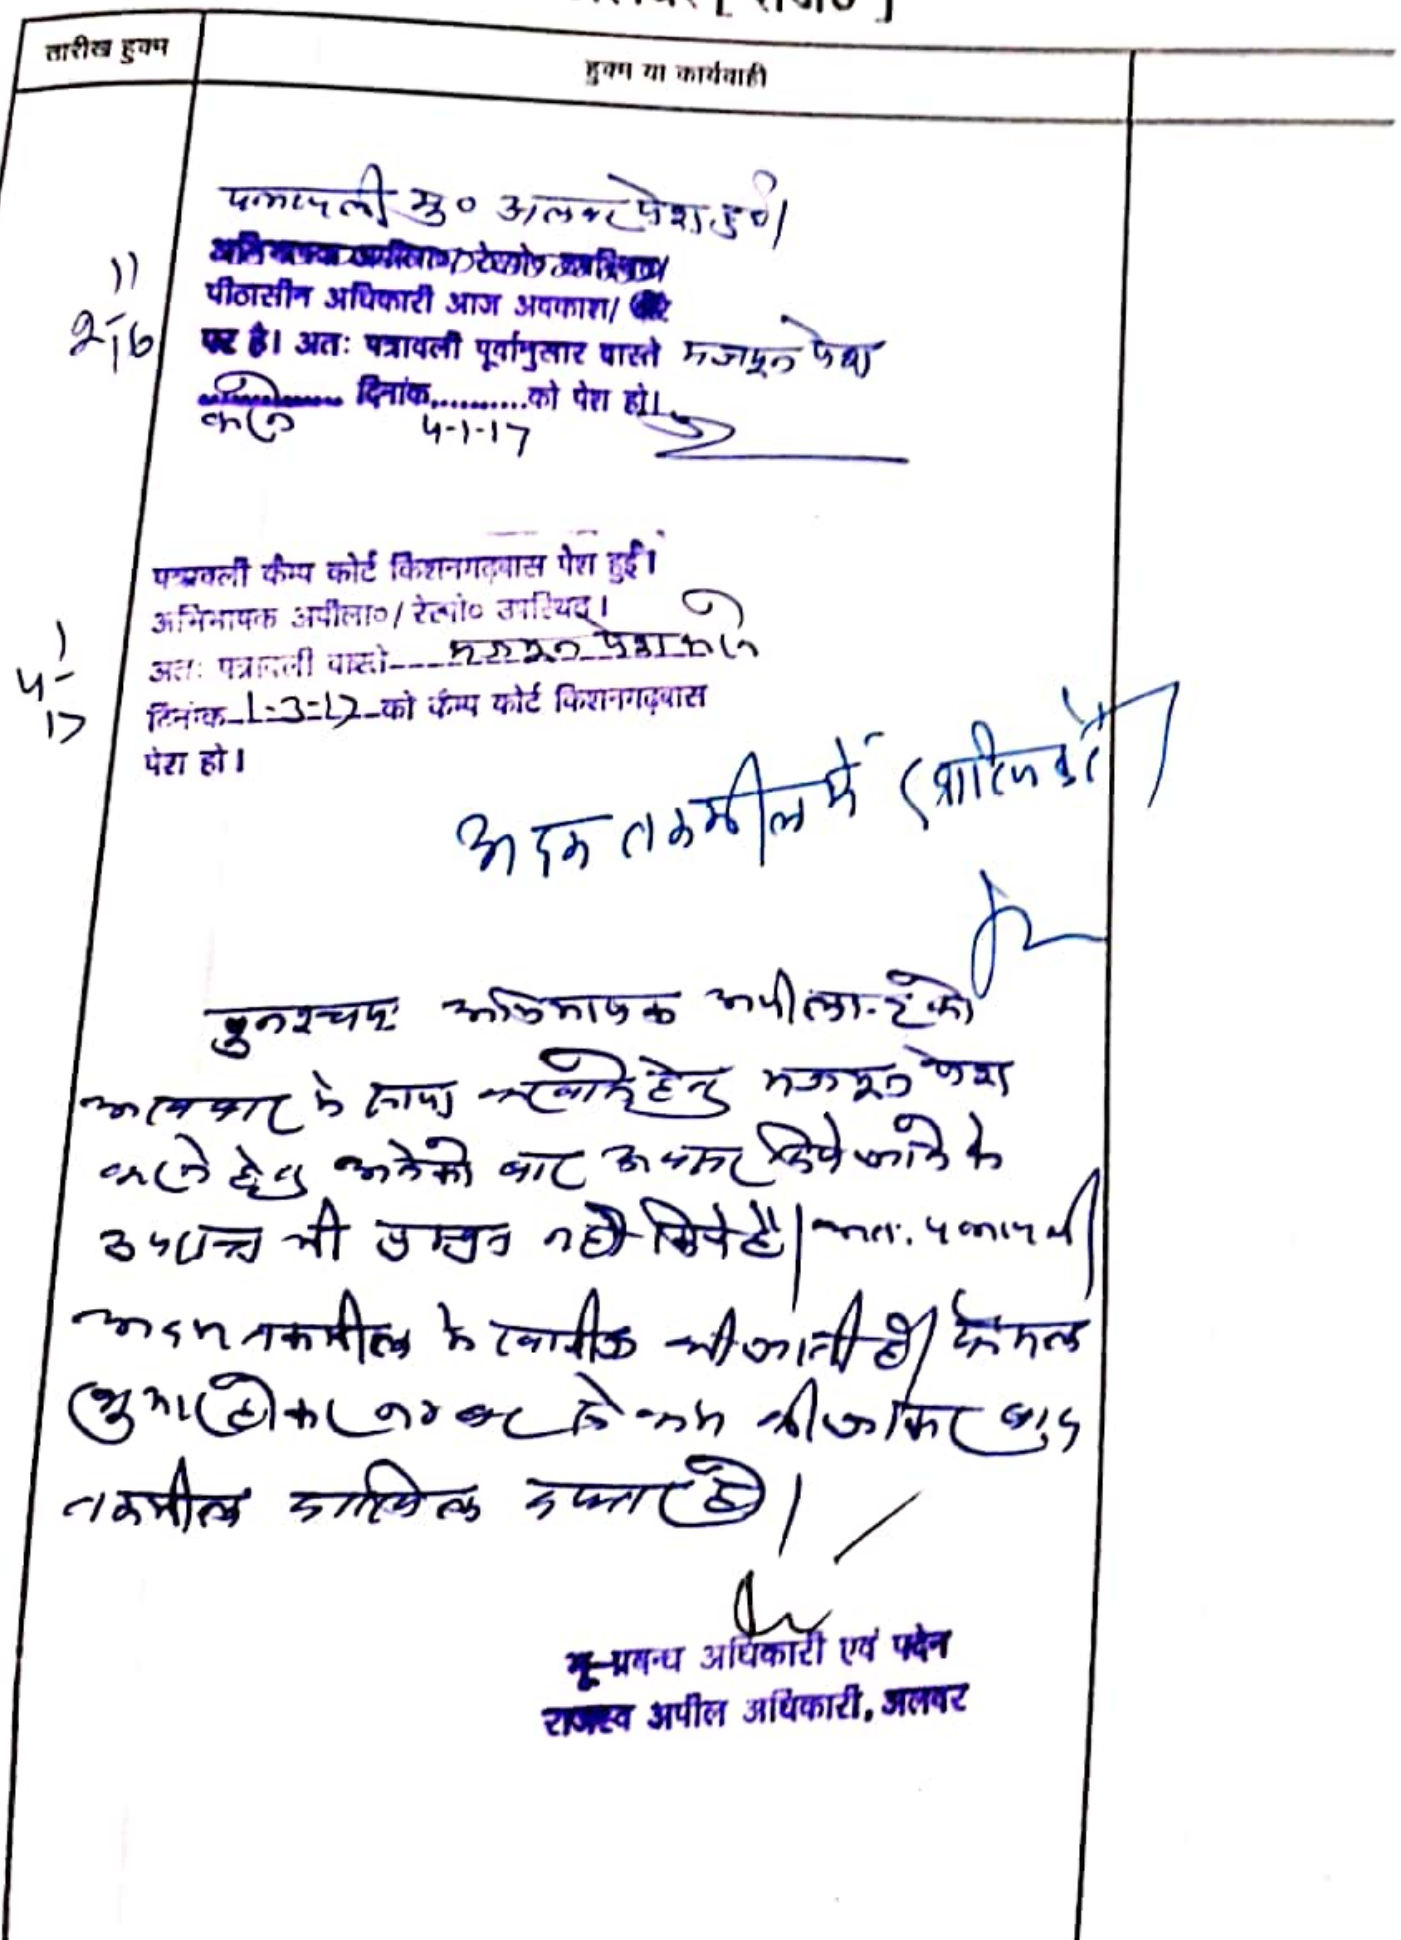 तारीख हुक्म
हुक्म या कार्यवाही
पत्रावली मु० अलवर पेश हुई।
पीठासीन अधिकारी आज अवकाश/
पर है। अतः पत्रावली पूर्वानुसार वास्ते मजमून पेश
करने दिनांक..........को पेश हो।
4-1-17
11
2-16
पत्रावली कैम्प कोर्ट किशनगढ़वास पेश हुई।
अभिभाषक अपीला०/रेस्पो० उपस्थित।
अतः पत्रावली वास्ते मजमून पेश करने
दिनांक 1-3-17 को कैम्प कोर्ट किशनगढ़वास
पेश हो।
1
4-
17
अदम तकमील में
पुनश्चः अभिभाषक अपीलान्ट को
अखबार में साया करवाने हेतु मजमून पेश
करने हेतु अनेको बार अवसर दिये जाने के
उपरान्त भी प्रस्तुत नही किये है। अतः पत्रावली
अदम तकमील में खारीज की जाती है। फैसल
शुमार होकर नम्बर से कम की जाकर बाद
तकमील दाखिल दफ्तर हो।
भू-प्रबन्ध अधिकारी एवं पदेन
राजस्व अपील अधिकारी, अलवर